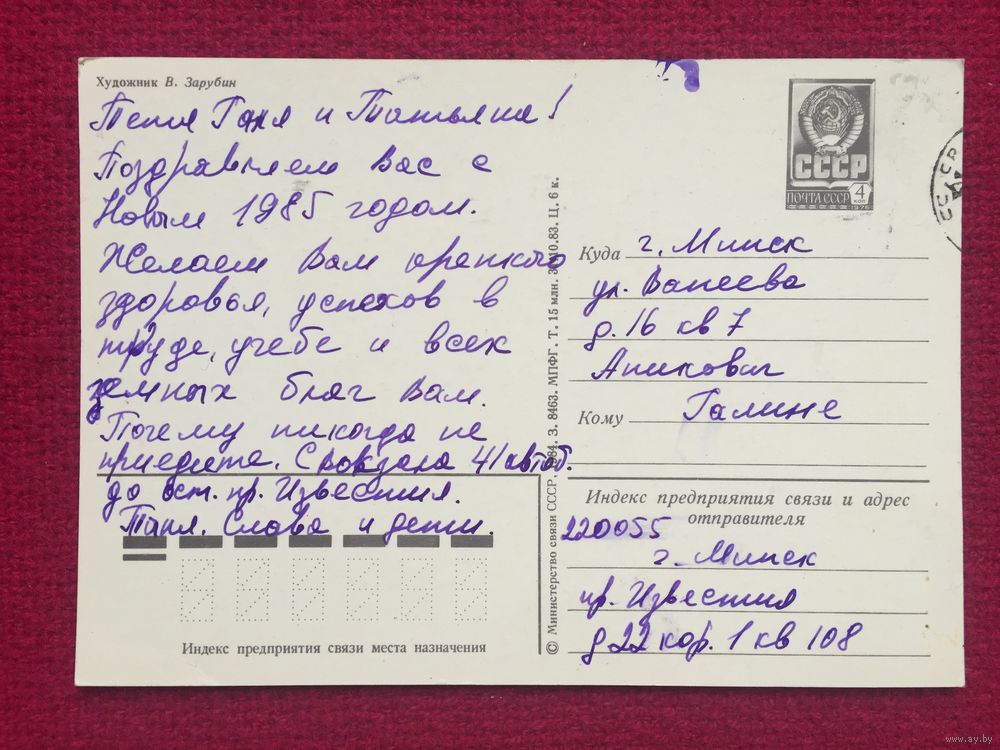 Художник В. Зарубин
Тетя Галя и Татьяна!
Поздравляем Вас с
Новым 1985 годом.
Желаем Вам крепкого
здоровья, успехов в
труде, учебе и всех
земных благ Вам.
Почему никогда не
приедите. С вокзала 41 автоб.
до ост. пр. Известия.
Таня. Слава и дети.
Индекс предприятия связи места назначения
© Министерство связи СССР, 1984. З. 8463. МПФГ. Т. 15 млн. 10.83. Ц. 6 к.
СССР
ПОЧТА СССР
4 коп
1976
СССР
Куда г. Минск
ул. Ванеева
д. 16 кв 7
Аникович
Кому Галине
Индекс предприятия связи и адрес
отправителя
220055
г. Минск
пр. Известия
д 22 кор. 1 кв 108
www.ay.by